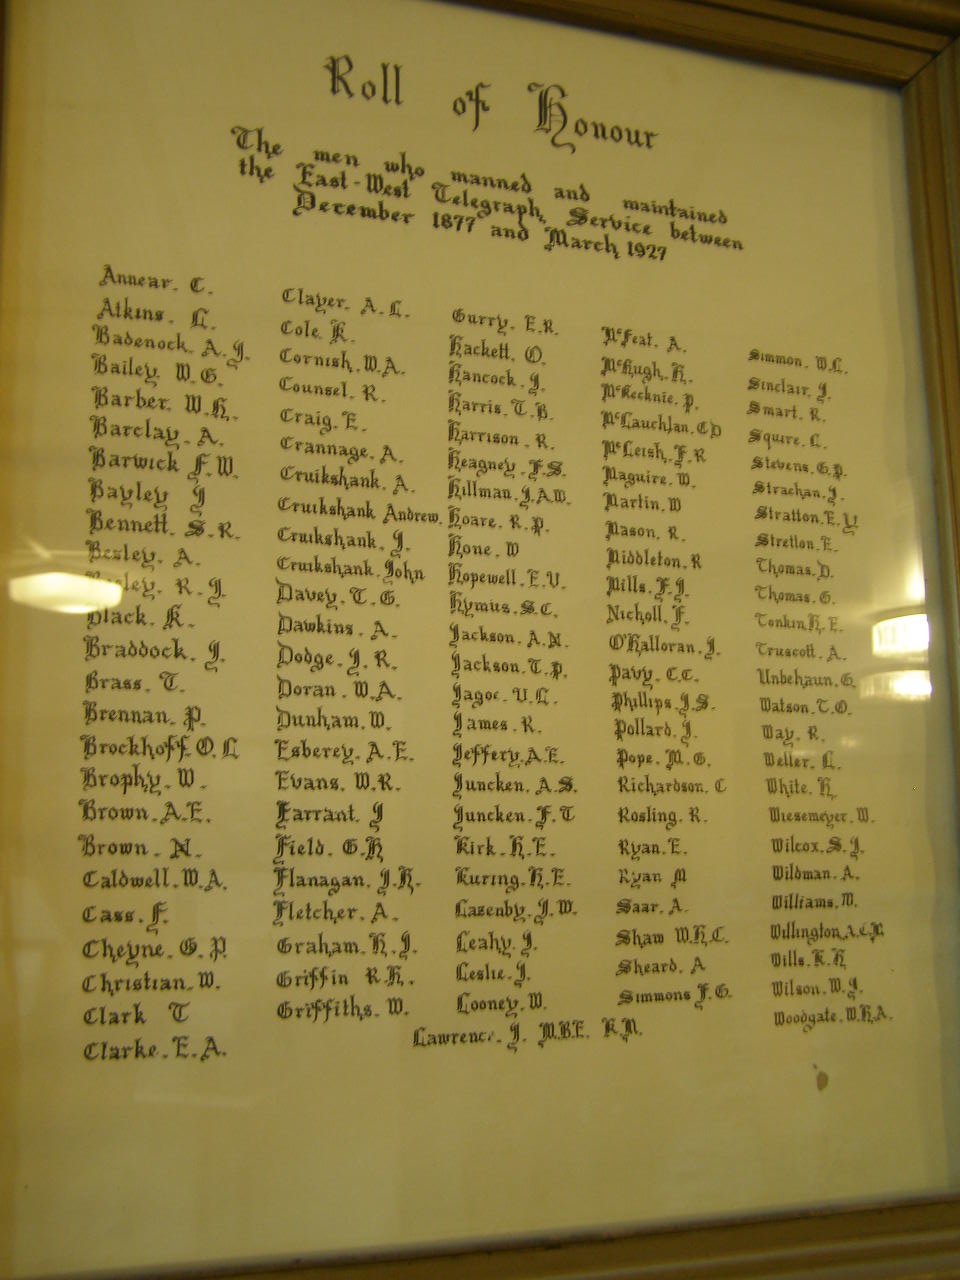 Roll of Honour
The men who manned and maintained
the East-West Telegraph Service between
December 1877 and March 1927
Annear. C.
Atkins. L.
Badenock. A. J.
Bailey. W. G.
Barber. W. H.
Barclay. A.
Barwick F. W.
Bayley J
Bennett. S. R.
Besley. A.
Besley. R. J.
Black. K.
Braddock. J.
Brass. T.
Brennan. P.
Brockhoff. O. L
Brophy. W.
Brown. A. E.
Brown. N.
Caldwell. W. A.
Cass. F.
Cheyne. G. P.
Christian. W.
Clark T
Clarke. E. A.
Clayer. A. L.
Cole. K.
Cornish. W. A.
Counsel. R.
Craig. E.
Crannage. A.
Cruikshank. A.
Cruikshank Andrew.
Cruikshank. J.
Cruikshank. John
Davey. T. G.
Dawkins. A.
Dodge. J. R.
Doran. W. A.
Dunham. W.
Esberey. A. E.
Evans. W. R.
Farrant. J
Field. G. H
Flanagan. J. H.
Fletcher. A.
Graham. H. J.
Griffin R. H.
Griffiths. W.
Gurry. E. R.
Hackett. O.
Hancock. J.
Harris. T. B.
Harrison. R.
Heagney. F. S.
Hillman. J. A. W.
Hoare. R. P.
Hone. W
Hopewell. E. V.
Hymus. S. C.
Jackson. A. N.
Jackson. T. P.
Jagoe. V. L.
James. R.
Jeffery. A. E.
Juncken. A. S.
Juncken. F. T
Kirk. H. E.
Kuring. H. E.
Lazenby. J. W.
Leahy. J.
Leslie. J.
Looney. W.
Lawrence. J. M.B.E. R.N.
McFeat. A.
McHugh. H.
McKecknie. P.
McLauchlan. C D
McLeish. F. R
Maguire. W.
Martin. W
Mason. R.
Middleton. R
Mills. F. J.
Nicholl. F.
O'Halloran. J.
Pavy. C. C.
Phillips. J. S.
Pollard. J.
Pope. M. G.
Richardson. C
Rosling. R.
Ryan. E.
Ryan M
Saar. A.
Shaw W. H. C.
Sheard. A
Simmons F. G.
Simmon. W. L.
Sinclair. J.
Smart. R.
Squire. L.
Stevens. G. P.
Strachan. J.
Stratton. E. V
Stretton. E.
Thomas. D.
Thomas. G.
Tonkin. H. E.
Truscott. A.
Unbehaun. G.
Watson. T. O.
Way. R.
Weller. L.
White. H
Wiesemeyer. W.
Wilcox. S. J.
Wildman. A.
Williams. W.
Willington. A. C. B.
Wills. K. H
Wilson. W. J.
Woodgate. W. H. A.